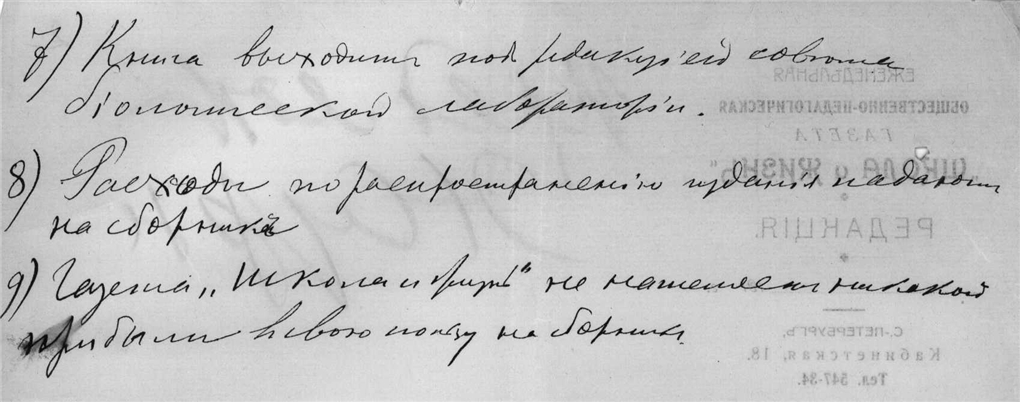 7) Книга выходитъ под редакціей совѣта
біологической лабораторіи.
8) Расходы по распространенію изданія падают
на сборникъ
9) Газета „Школа и жизнь" не начисляет никакой
прибыли в свою пользу на сборник.
ЕЖЕНЕДѢЛЬНАЯ
ОБЩЕСТВЕННО-ПЕДАГОГИЧЕСКАЯ
ГАЗЕТА
„ШКОЛА и ЖИЗНЬ"
РЕДАКЦІЯ.
С.-ПЕТЕРБУРГЪ,
Кабинетская, 18.
Тел. 547-34.